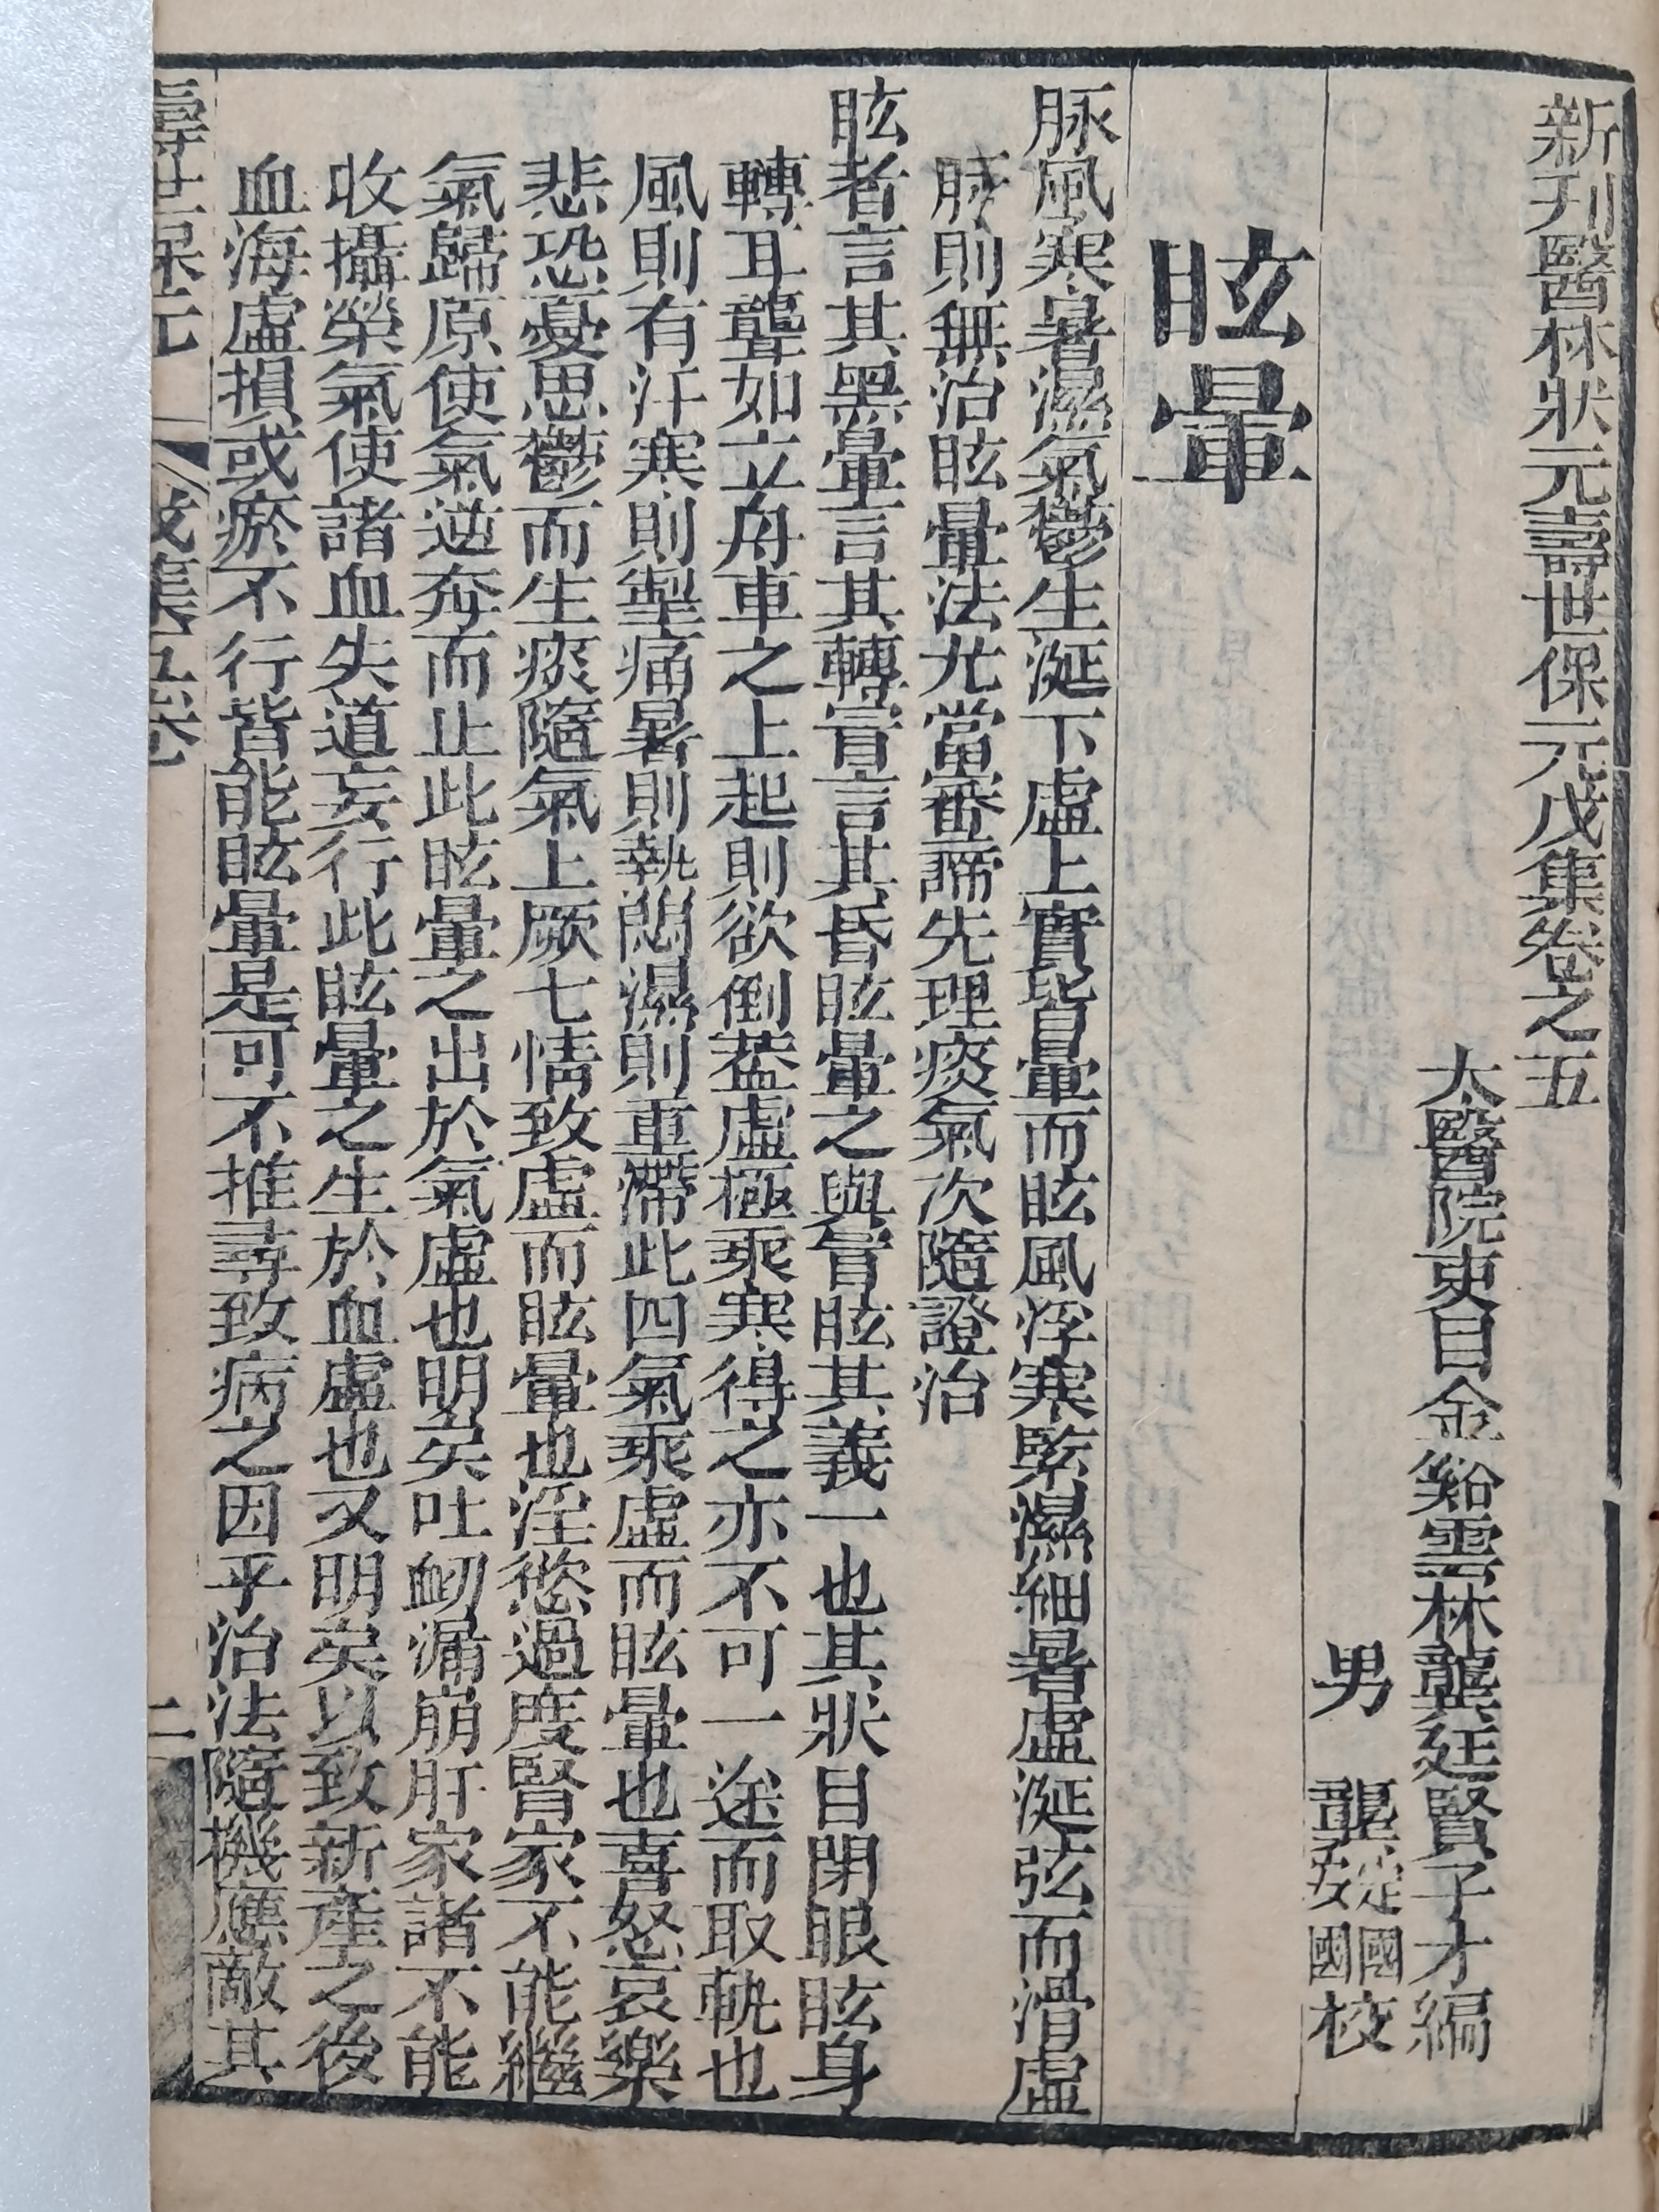 新刊醫林狀元壽世保元戊集卷之五
太醫院吏目金谿雲林龔廷賢子才編
男 龔定國安國校
眩暈
脉風寒暑濕氣鬱生涎下虛上實皆暈而眩風浮寒緊濕細暑虛涎弦而滑虛
脉則無治眩暈法尤當審諦先理痰氣次隨證治
眩者言其黑暈言其轉冒言其昏眩暈之與冒眩其義一也其狀目閉眼眩身
轉耳聾如立舟車之上起則欲倒蓋虛極乘寒得之亦不可一途而取軌也
風則有汗寒則掣痛暑則熱悶濕則重滯此四氣乘虛而眩暈也喜怒哀樂
悲恐憂思鬱而生痰隨氣上厥七情致虛而眩暈也淫慾過度腎家不能繼
氣歸原使氣逆奔而止此眩暈之出於氣虛也明矣吐衂漏崩肝家諸不能
收攝榮氣使諸血失道妄行此眩暈之生於血虛也又明矣以致新產之後
血海虛損或瘀不行皆能眩暈是可不推尋致病之因乎治法隨機應敵其
壽世保元 戊集五卷 二